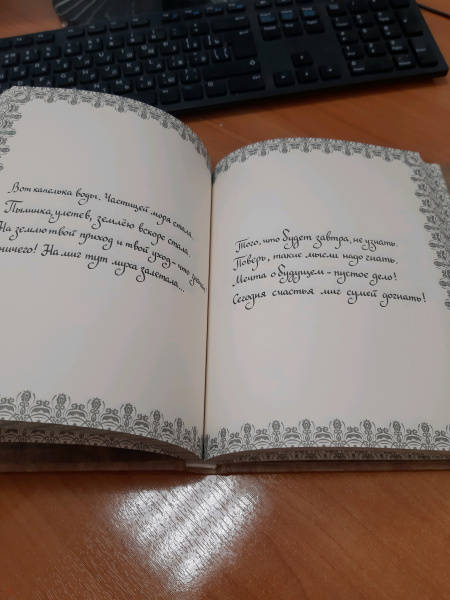 Вот капелька воды. Частицей моря стала.
Пылинка, улетев, землёю вскоре стала.
На землю твой приход и твой уход – что
ничего! На миг тут муха залетала...
Того, что будет завтра, не узнать.
Поверь, такие мысли надо гнать.
Мечта о будущем – пустое дело!
Сегодня счастья миг сумей догнать!